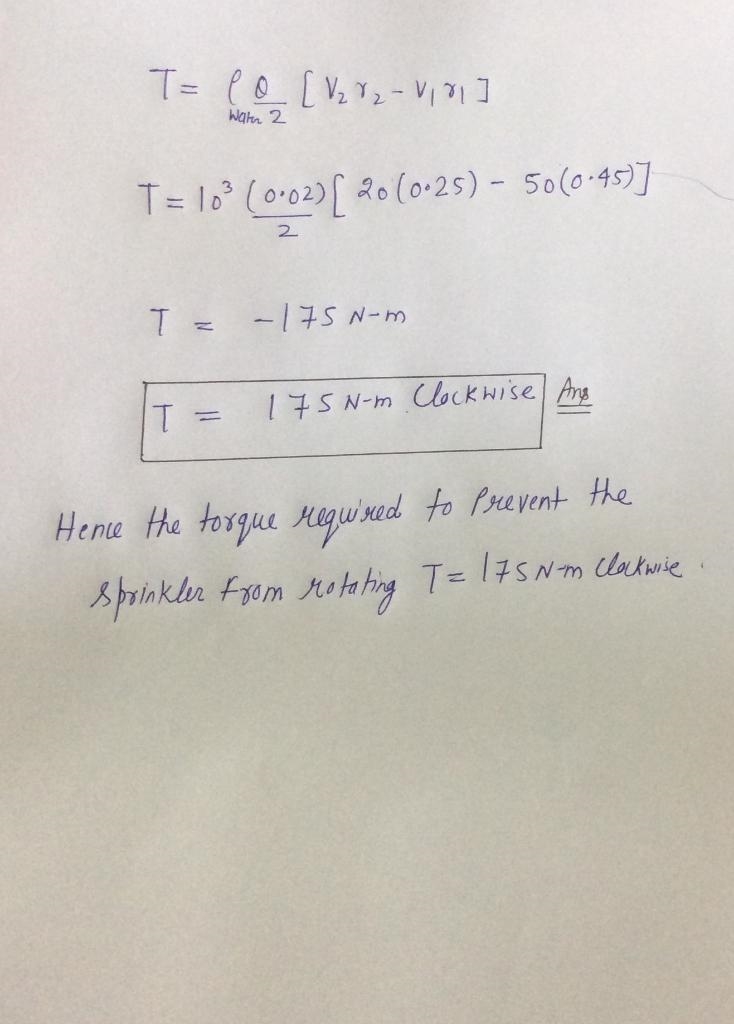 T = ρ Q/2 [V₂r₂ - V₁r₁]
Water
T = 10³ (0.02)/2 [20(0.25) - 50(0.45)]
T = -175 N-m
T = 175 N-m Clockwise Ans
Hence the torque required to Prevent the
Sprinkler from rotating T = 175 N-m Clockwise.